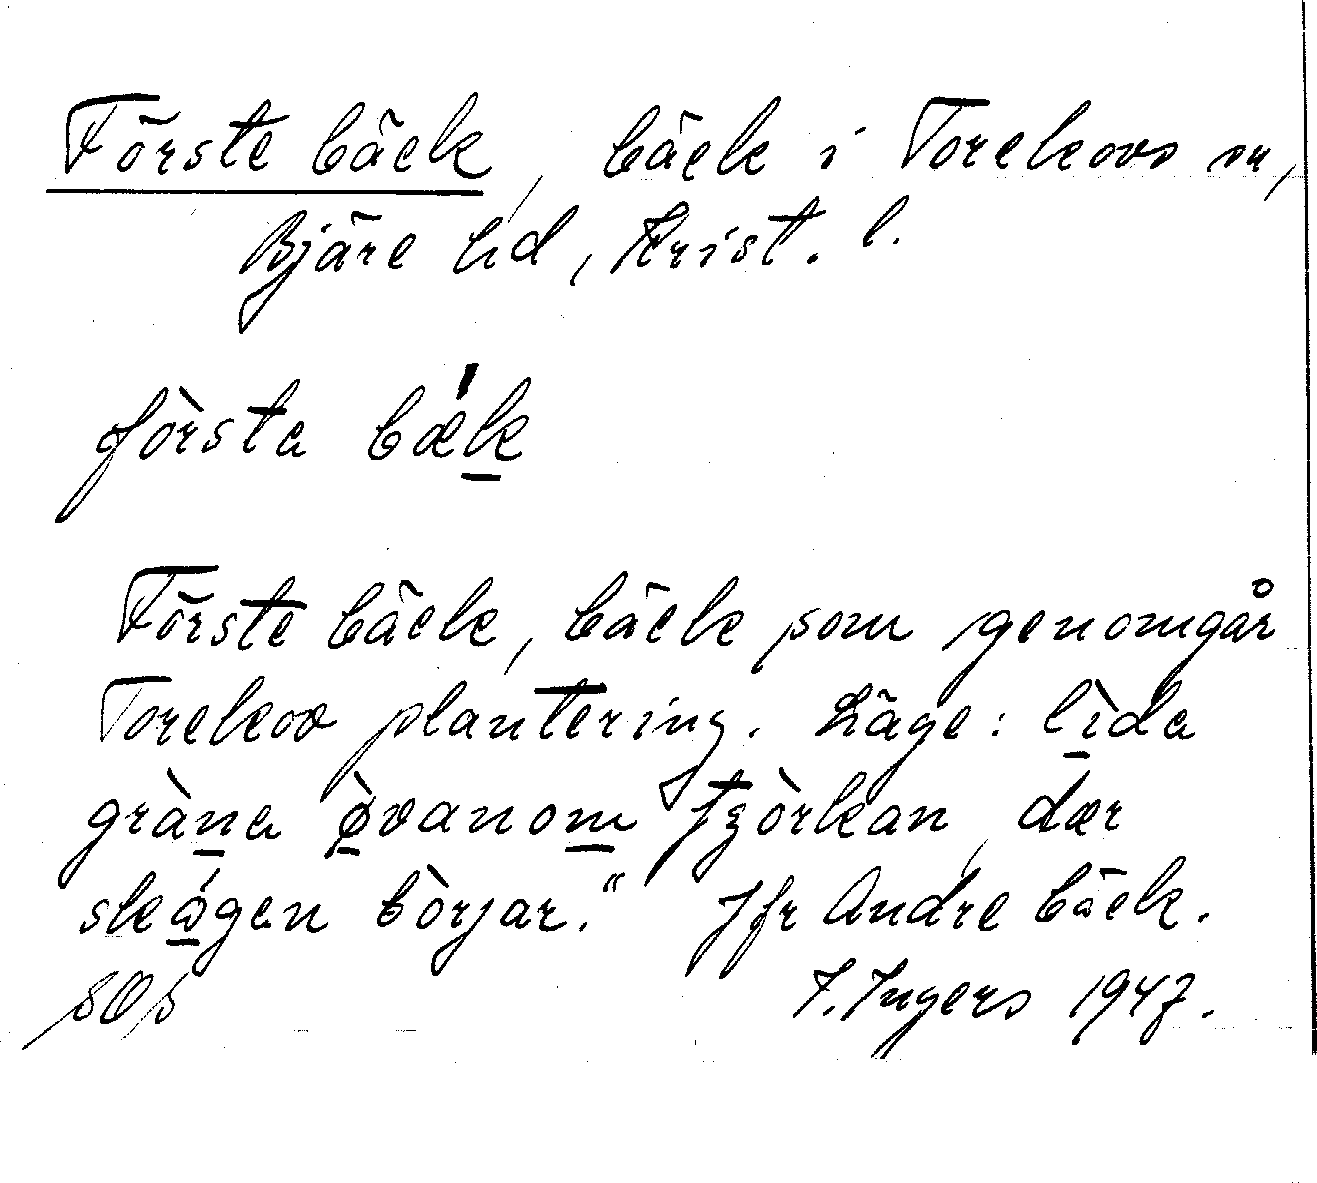 Förste bäck, bäck i Torekovs sn,
Bjäre hd, Krist. l.
fòrsta bǽk
Förste bäck, bäck som genomgår
Torekov plantering. Läge: lìda
gràna ø̀vanom fzòrkan, dær
skǿgen bòrjar." Jfr Andre bäck.
SOs I. Ingers 1947.